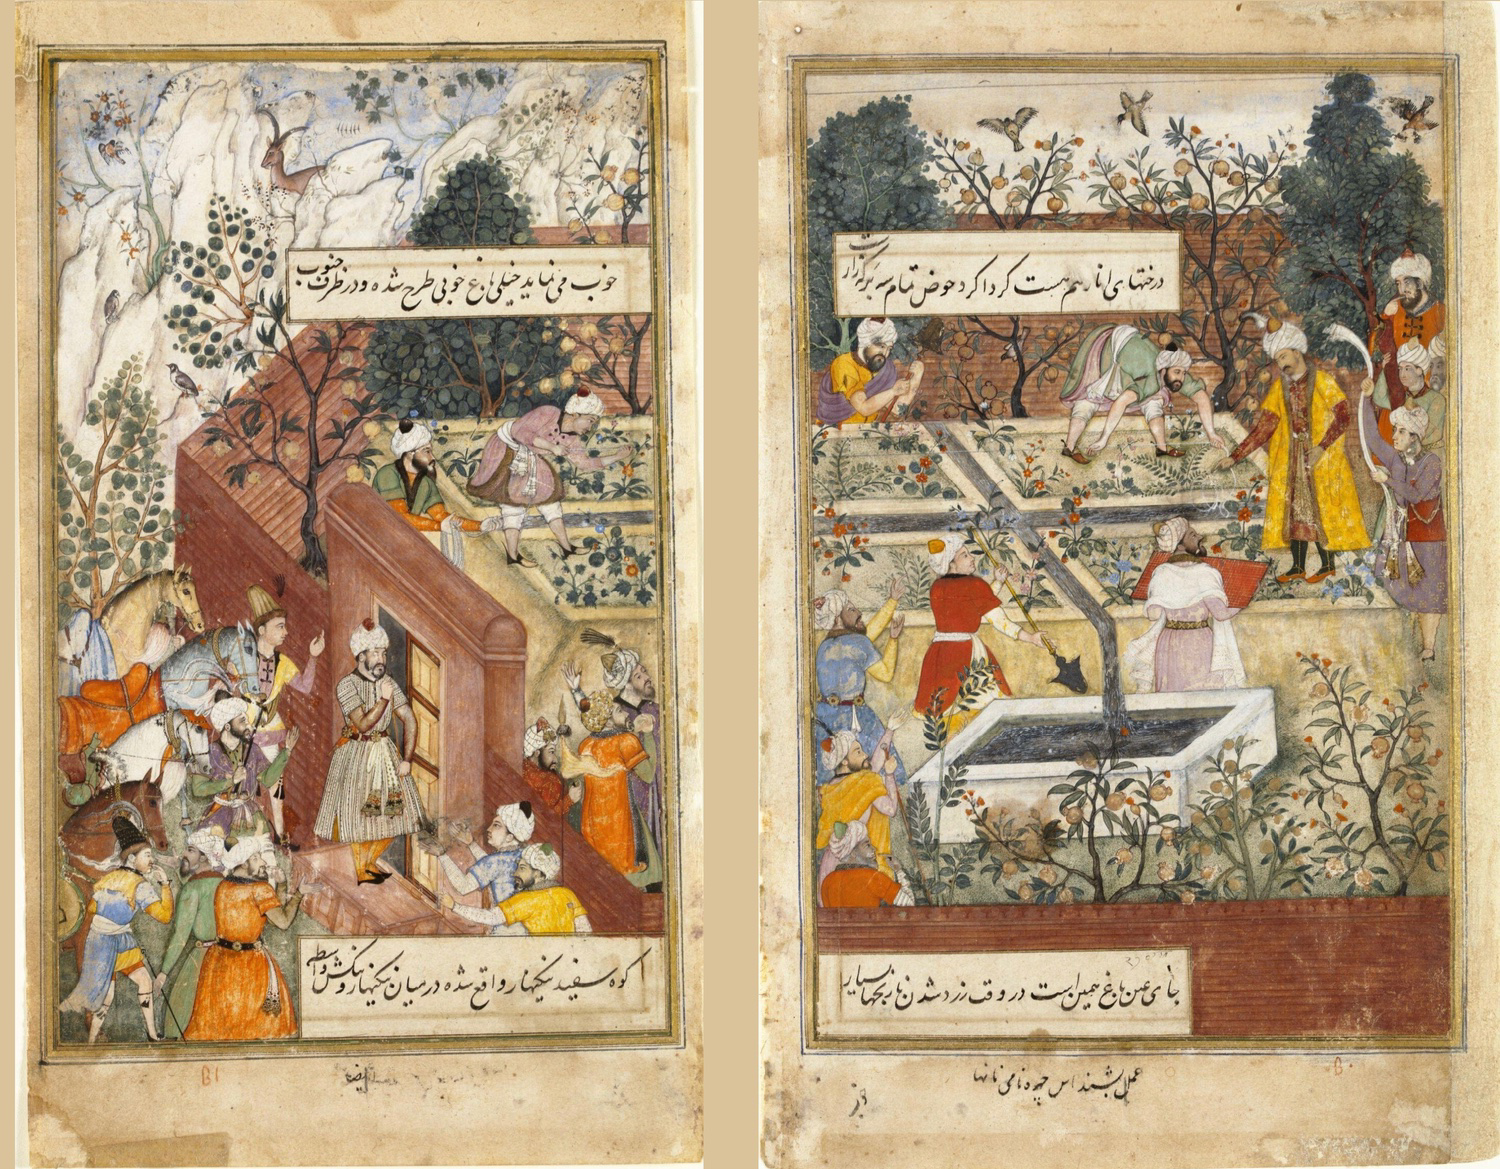 درختهای انار هم هست گرداگرد حوض تمام سه برگه زارست
جای عین باغ همین است در وقت زرد شدن نارنجها بسیار
عمل بشنداس چهره نامی نانها
خوب می نماید خیلی باغ خوبی طرح شده و در طرف جنوب
کوه سفید نیکنهار واقع شده در میان نیکنهار و بنکش واسطه